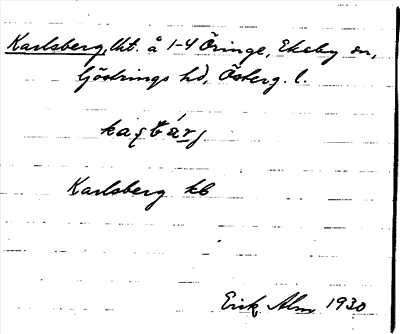 Karlsberg, lht. å 1-4 Öringe, Ekeby sn,
Göstrings hd, Österg. l.
Karlsberg kb
Erik Alm 1930